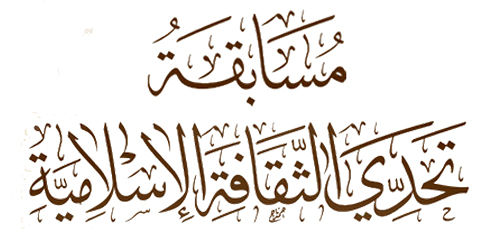 مُسَابَقَةُ
تَحَدِّي الثَّقَافَةِ الإِسْلَامِيَّةِ